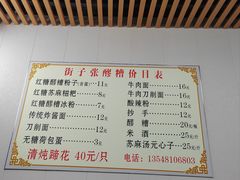 街子张醪糟价目表
红糖醪糟粉子 11元
红糖苏麻糍粑 8元
红糖醪糟冰粉 7元
传统炸酱面 12元
刀削面 12元
无糖荷包蛋 3元
清炖蹄花 40元/只
牛肉面 16元
牛肉刀削面 16元
酸辣粉 12元
抄手 12元
醪糟 20元
米酒 25元/斤
苏麻汤元心子 25元/斤
电话：13548106803